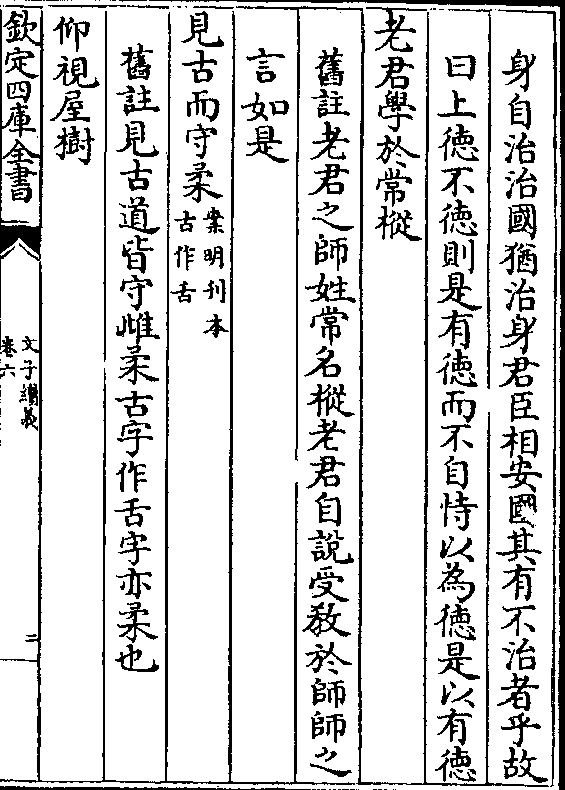 身自治治國猶治身君臣相安國其有不治者乎故
曰上徳不徳則是有徳而不自恃以為徳是以有徳
老君學於常樅
舊註老君之師姓常名樅老君自說受教於師師之
言如是
見古而守柔案明刋本古作舌
舊註見古道皆守雌柔古字作舌字亦柔也
仰視屋樹
欽定四庫全書
文子纘義
卷六
二